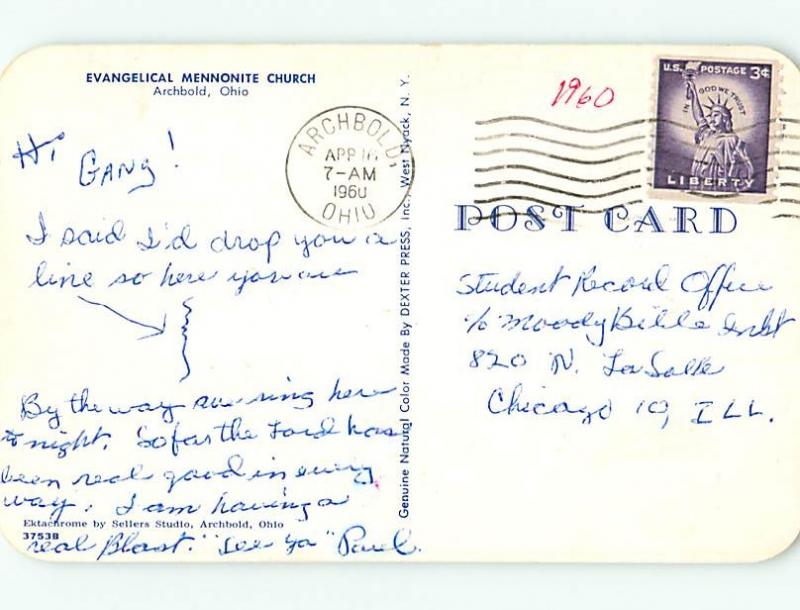 EVANGELICAL MENNONITE CHURCH
Archbold, Ohio
Hi
GANG!
I said I'd drop you a
line so here you are
By the way we sing here
to night. So far the Lord has
been real good in every
way. I am having a
Ektachrome by Sellers Studio, Archbold, Ohio
37538
real Blast. "See Ya" Paul.
Genuine Natural Color Made By DEXTER PRESS, Inc., West Nyack, N. Y.
ARCHBOLD,
APR 16
7-AM
1960
OHIO
1960
U.S. POSTAGE 3¢
IN GOD WE TRUST
LIBERTY
POST CARD
Student Record Office
c/o Moody Bible Inst
820 N. LaSalle
Chicago 10, ILL.